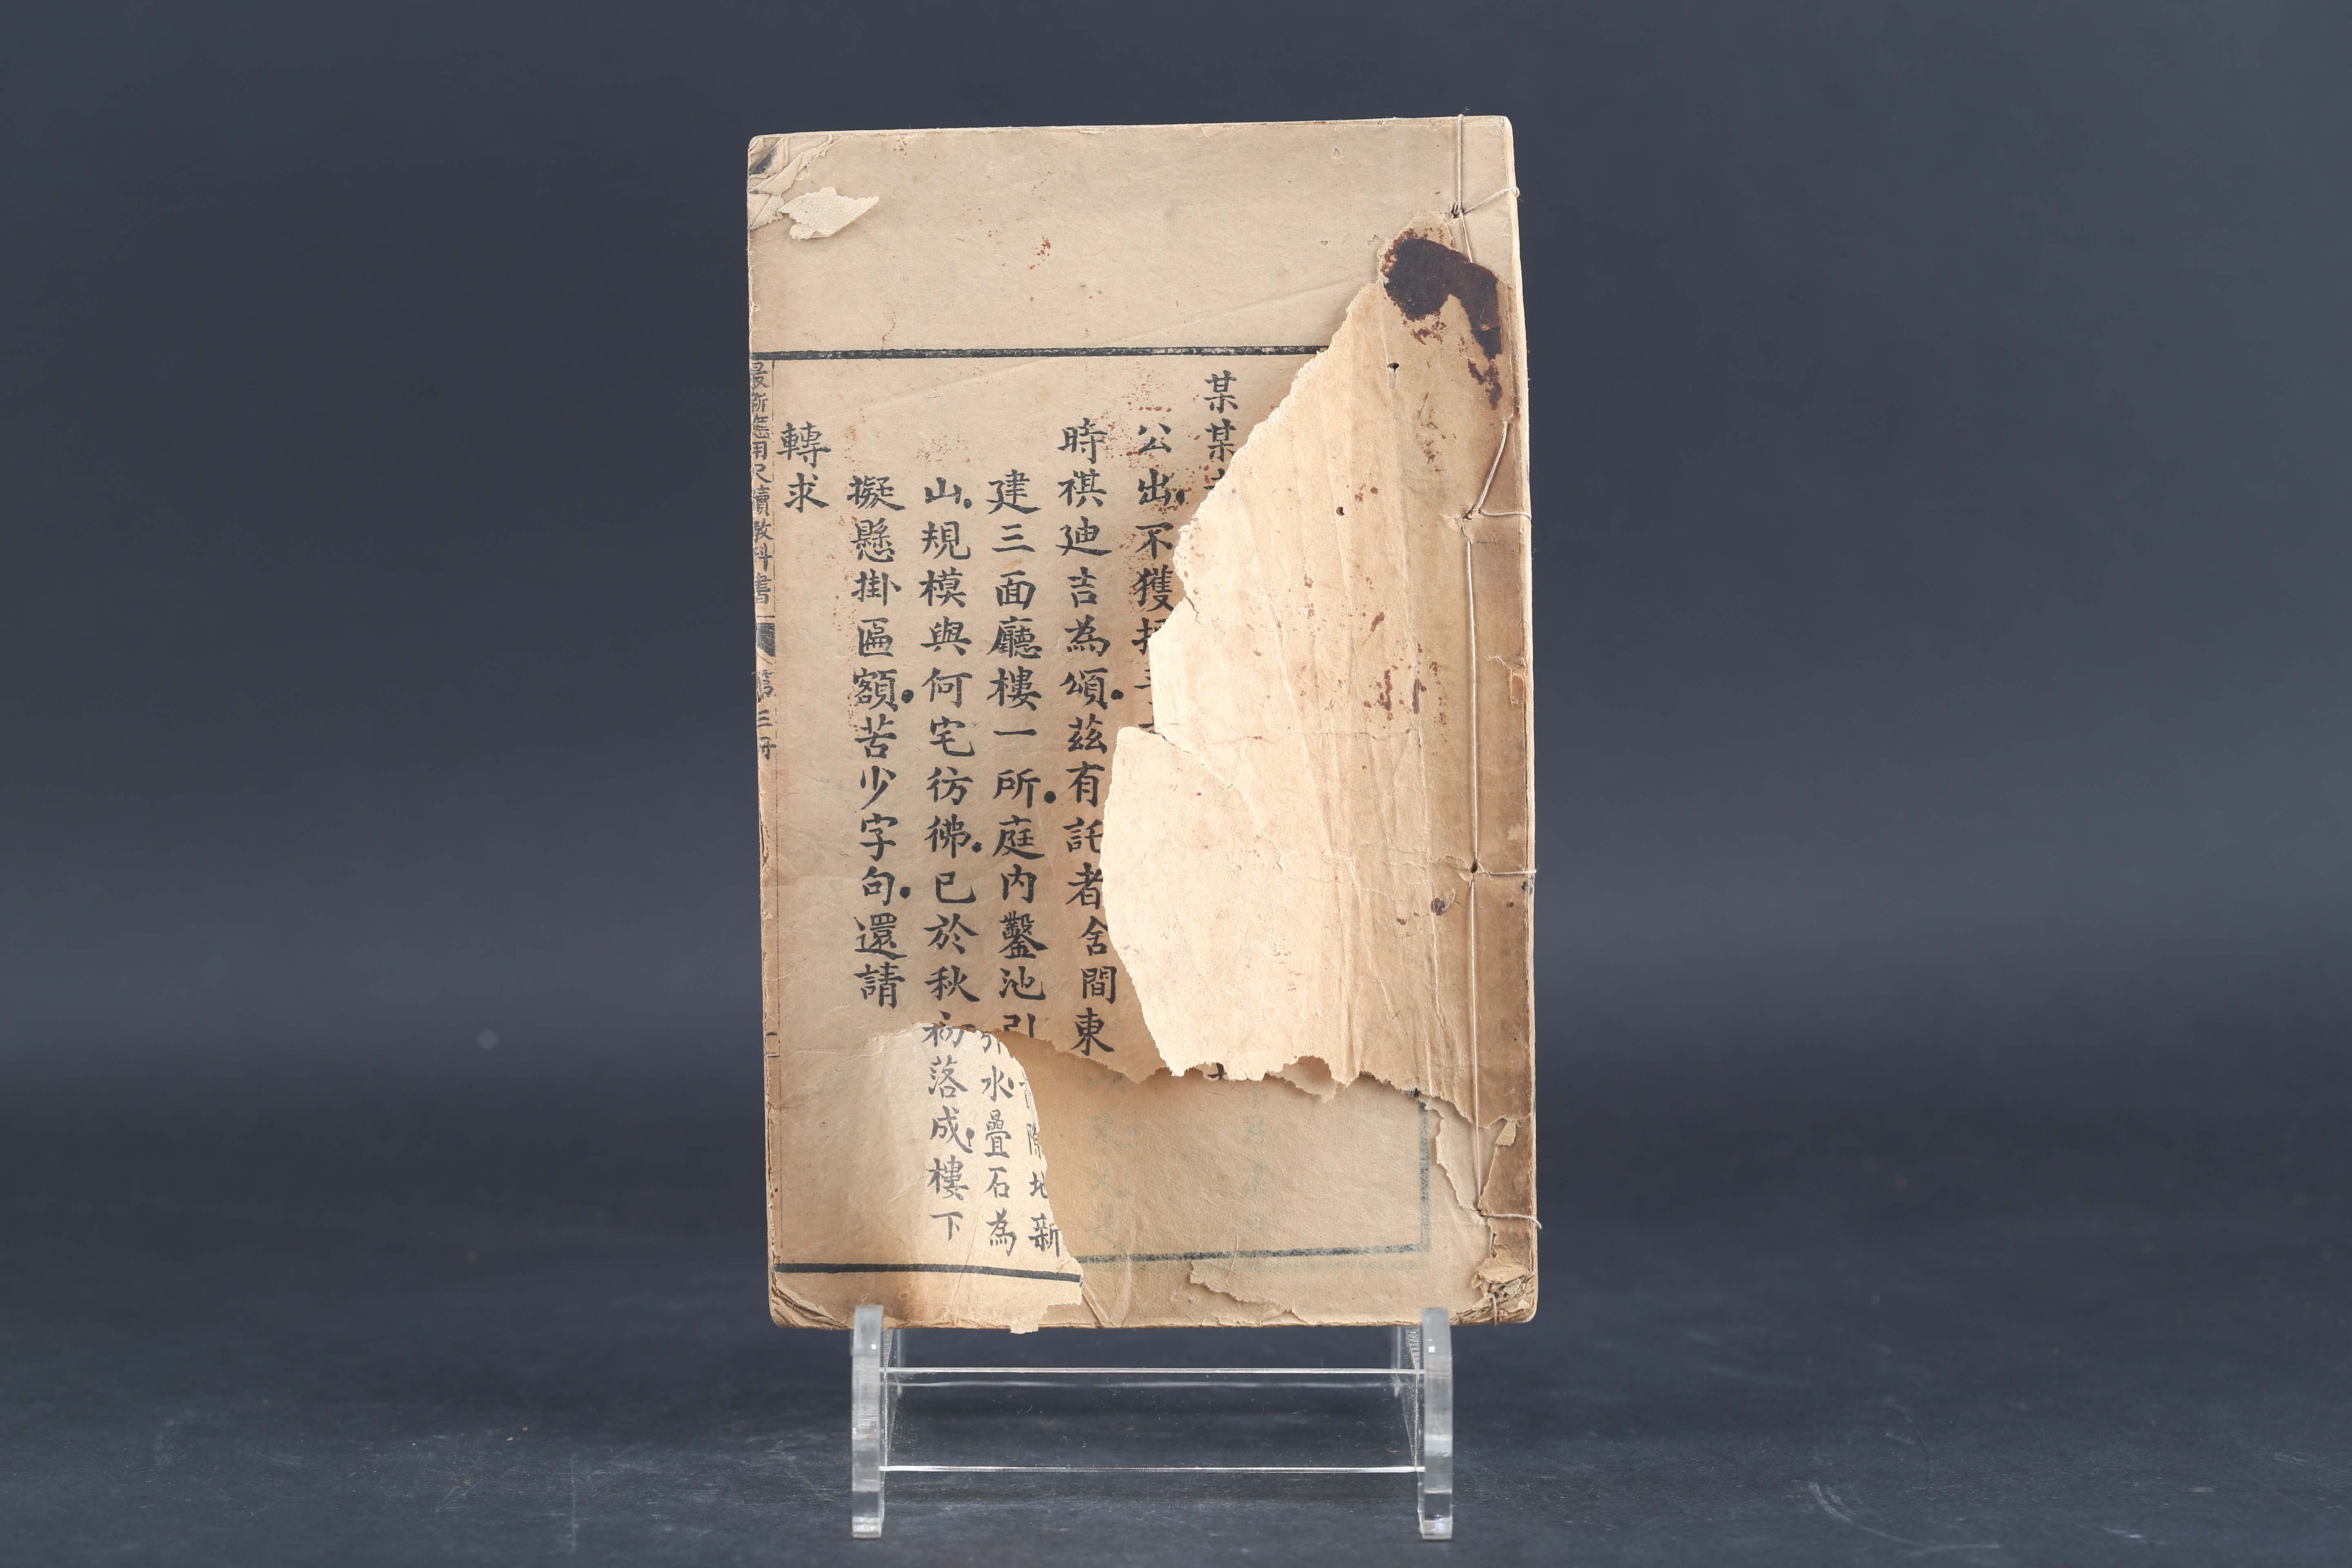 某某
公出。不獲
時祺廸吉為頌。茲有託者舍間東
隙地新
建三面廳樓一所。庭內鑿池引
引水疊石為
山。規模與何宅彷彿。已於秋初落成。樓下
擬懸掛匾額。苦少字句。還請
轉求
最新應用尺牘教科書 第三冊 一